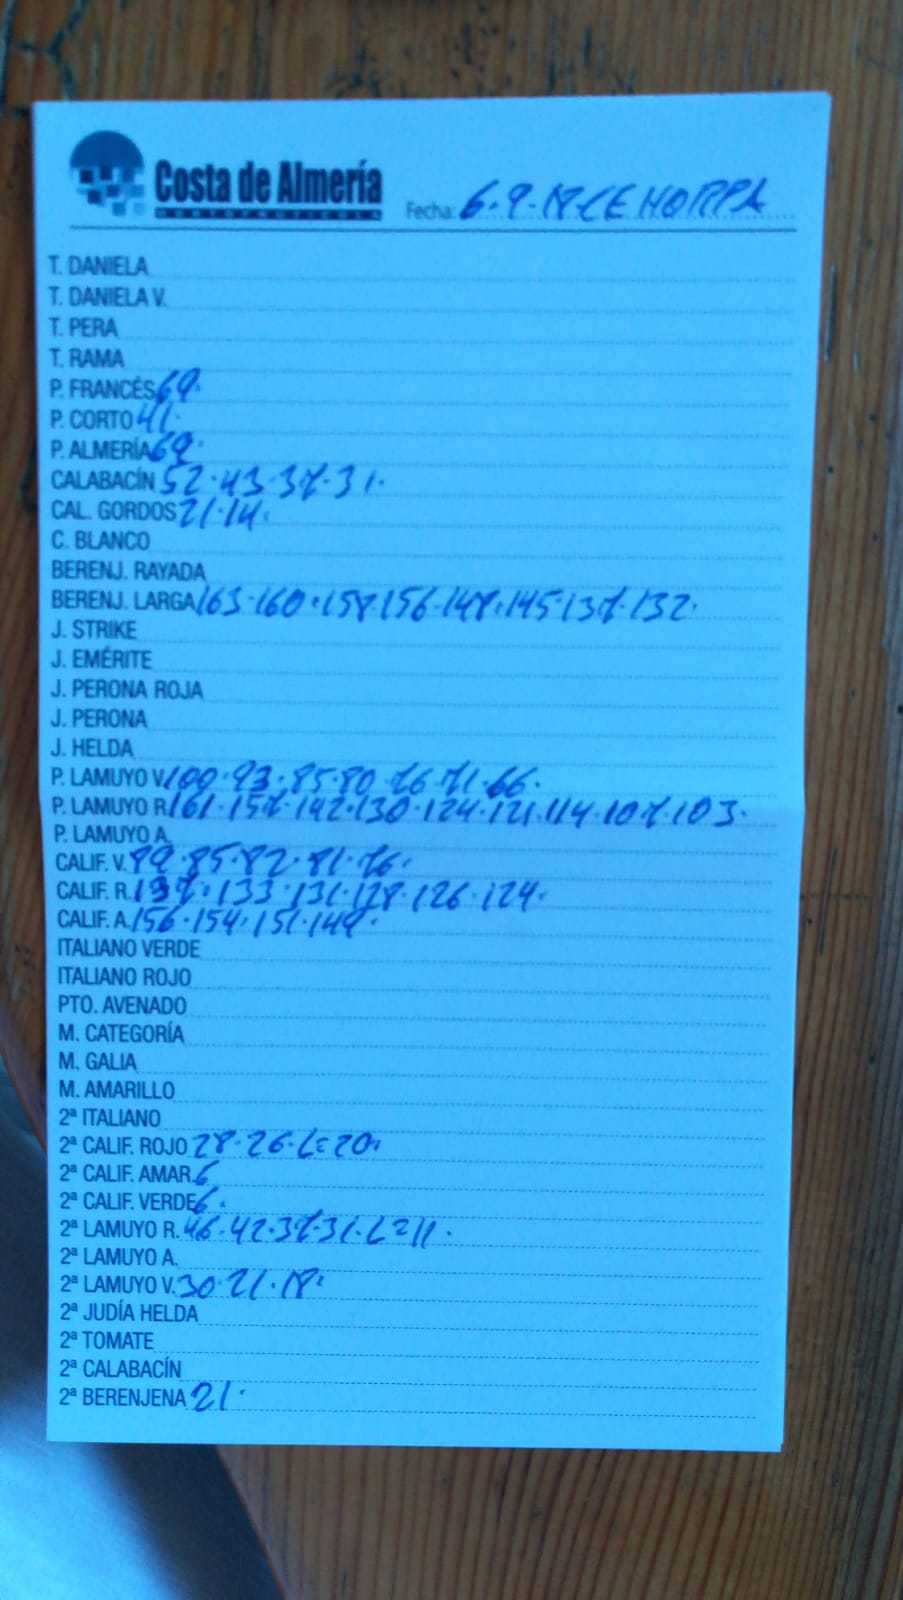 Costa de Almería
HORTOFRUTICOLA
Fecha: 6.9.18 CEHORPA
T. DANIELA
T. DANIELA V.
T. PERA
T. RAMA
P. FRANCÉS 69.
P. CORTO 41.
P. ALMERÍA 69.
CALABACÍN 52.43.37.31.
CAL. GORDOS 21.14.
C. BLANCO
BERENJ. RAYADA
BERENJ. LARGA 163.160.158.156.148.145.137.132.
J. STRIKE
J. EMÉRITE
J. PERONA ROJA
J. PERONA
J. HELDA
P. LAMUYO V. 100.93.85.80.76.71.66.
P. LAMUYO R. 161.157.142.130.124.121.114.107.103.
P. LAMUYO A.
CALIF. V. 89.85.82.81.76.
CALIF. R. 137.133.131.128.126.124.
CALIF. A. 156.154.151.149.
ITALIANO VERDE
ITALIANO ROJO
PTO. AVENADO
M. CATEGORÍA
M. GALIA
M. AMARILLO
2ª ITALIANO
2ª CALIF. ROJO 28.26.L=20.
2ª CALIF. AMAR. 6
2ª CALIF. VERDE 6.
2ª LAMUYO R. 46.42.37.31.L=11.
2ª LAMUYO A.
2ª LAMUYO V. 30.21.18.
2ª JUDÍA HELDA
2ª TOMATE
2ª CALABACÍN
2ª BERENJENA 21.